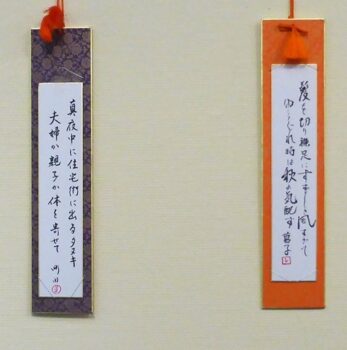 髪を切り襟足にすずし風
時は秋の気配す
真夜中に住宅街に出るタヌキ
夫婦か親子か体を寄せて 町田